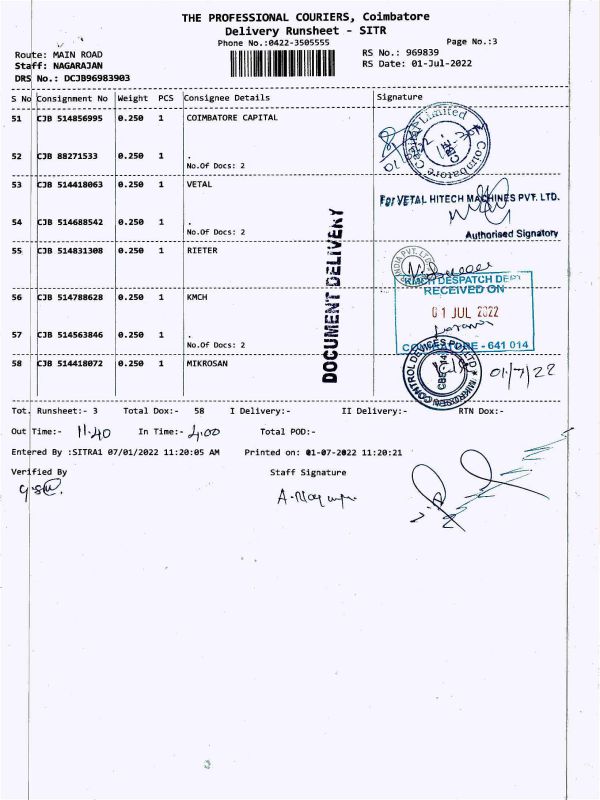 THE PROFESSIONAL COURIERS, Coimbatore
Delivery Runsheet - SITR
Phone No.:0422-3505555
Page No.:3
Route: MAIN ROAD
RS No.: 969839
Staff: NAGARAJAN
RS Date: 01-Jul-2022
DRS No.: DCJB96983903
S No Consignment No Weight PCS Consignee Details Signature
51 CJB 514856995 0.250 1 COIMBATORE CAPITAL
Coimbatore Capital Limited
CBE
52 CJB 88271533 0.250 1 .
No.Of Docs: 2
53 CJB 514418063 0.250 1 VETAL
For VETAL HITECH MACHINES PVT. LTD.
54 CJB 514688542 0.250 1 .
No.Of Docs: 2
Authorised Signatory
55 CJB 514831308 0.250 1 RIETER
INDIA PVT. LTD
KMCH DESPATCH DEPT
RECEIVED ON
56 CJB 514788628 0.250 1 KMCH
01 JUL 2022
57 CJB 514563846 0.250 1 .
No.Of Docs: 2
COIMBATORE - 641 014
58 CJB 514418072 0.250 1 MIKROSAN
CONTROL DEVICES PVT LTD
CBE
01/7/22
DOCUMENT DELIVERY
Tot. Runsheet:- 3 Total Dox:- 58 I Delivery:- II Delivery:- RTN Dox:-
Out Time:- 11.40 In Time:- 4.00 Total POD:-
Entered By :SITRA1 07/01/2022 11:20:05 AM Printed on: 01-07-2022 11:20:21
Verified By Staff Signature